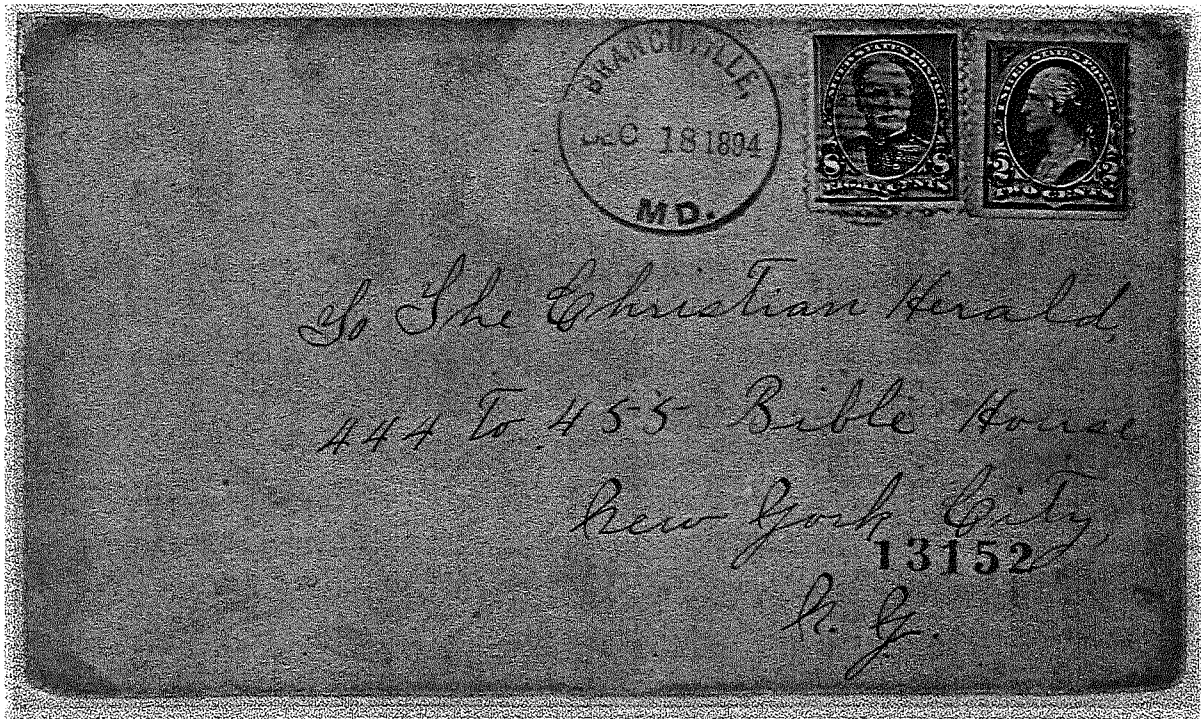 BRANCHVILLE,
DEC 18 1894
MD.
UNITED STATES POSTAGE
8 8
EIGHT CENTS
UNITED STATES POSTAGE
2 2
TWO CENTS
To The Christian Herald,
444 To 455 Bible House
New York City,
13152
N. Y.